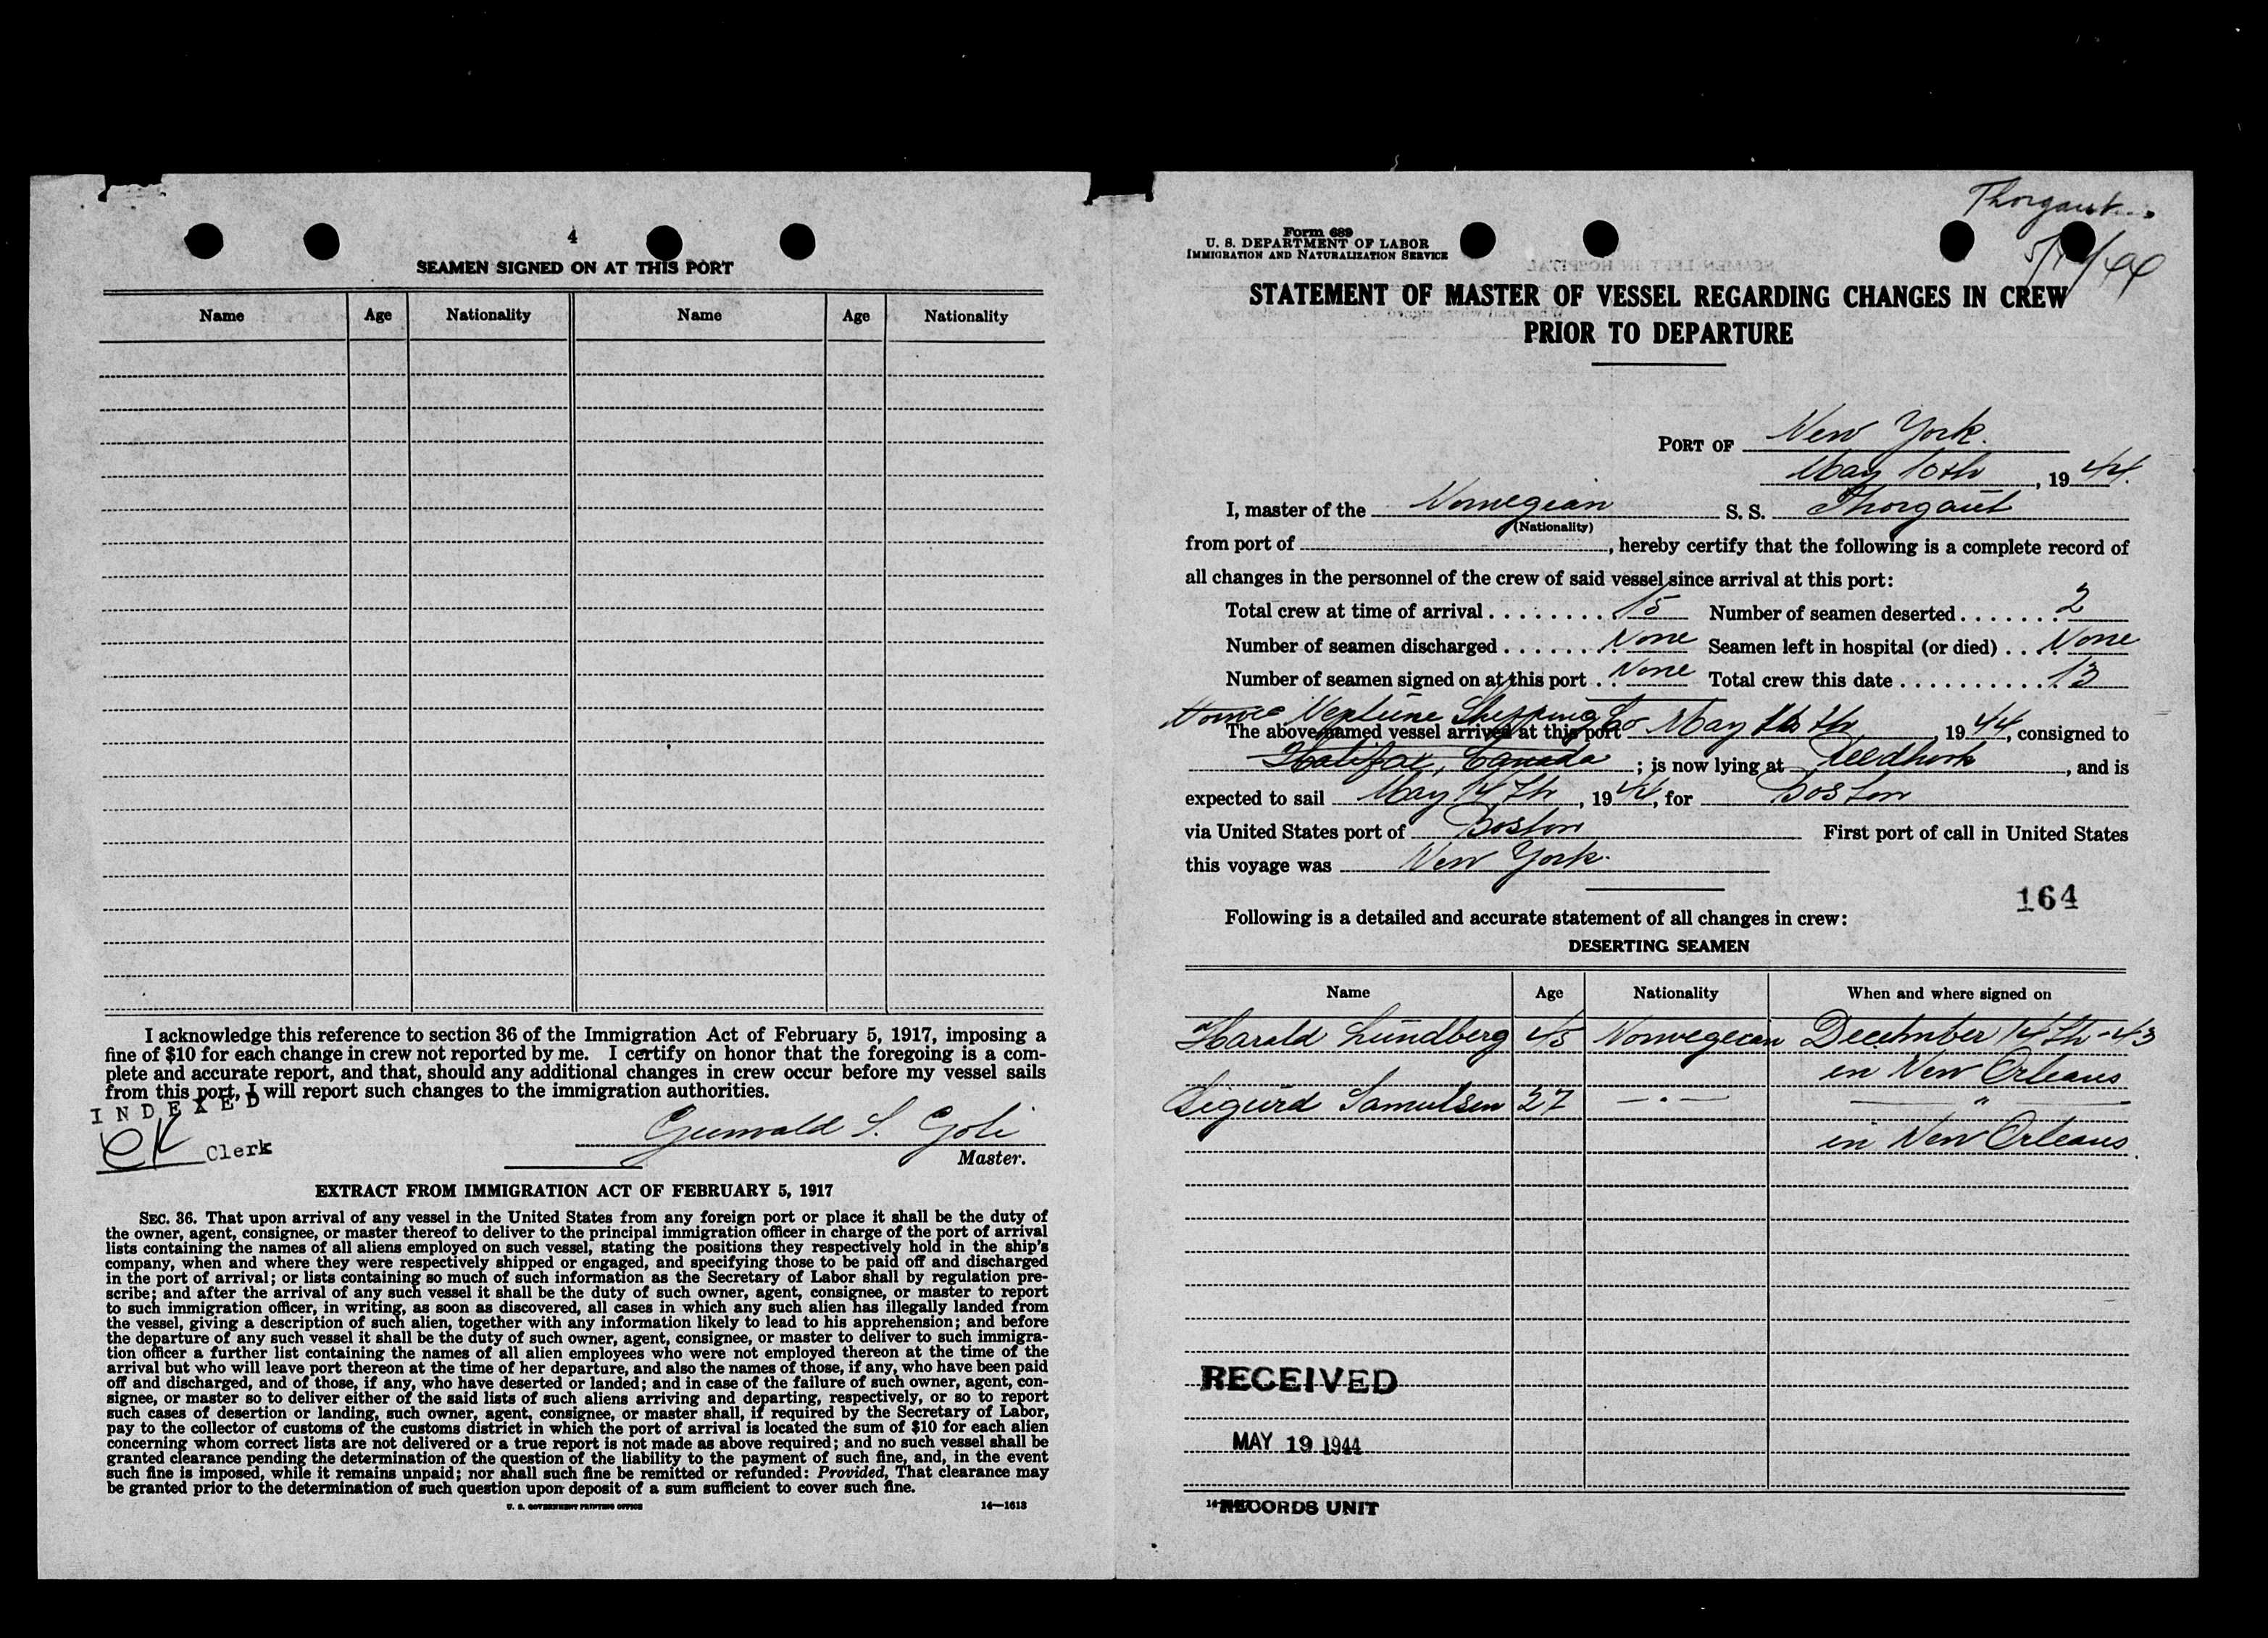 4
SEAMEN SIGNED ON AT THIS PORT
Name Age Nationality Name Age Nationality
I acknowledge this reference to section 36 of the Immigration Act of February 5, 1917, imposing a
fine of $10 for each change in crew not reported by me. I certify on honor that the foregoing is a com-
plete and accurate report, and that, should any additional changes in crew occur before my vessel sails
from this port, I will report such changes to the immigration authorities.
INDEXED
Clerk
Gunvald S. Goli
Master.
EXTRACT FROM IMMIGRATION ACT OF FEBRUARY 5, 1917
SEC. 36. That upon arrival of any vessel in the United States from any foreign port or place it shall be the duty of
the owner, agent, consignee, or master thereof to deliver to the principal immigration officer in charge of the port of arrival
lists containing the names of all aliens employed on such vessel, stating the positions they respectively hold in the ship's
company, when and where they were respectively shipped or engaged, and specifying those to be paid off and discharged
in the port of arrival; or lists containing so much of such information as the Secretary of Labor shall by regulation pre-
scribe; and after the arrival of any such vessel it shall be the duty of such owner, agent, consignee, or master to report
to such immigration officer, in writing, as soon as discovered, all cases in which any such alien has illegally landed from
the vessel, giving a description of such alien, together with any information likely to lead to his apprehension; and before
the departure of any such vessel it shall be the duty of such owner, agent, consignee, or master to deliver to such immigra-
tion officer a further list containing the names of all alien employees who were not employed thereon at the time of the
arrival but who will leave port thereon at the time of her departure, and also the names of those, if any, who have been paid
off and discharged, and of those, if any, who have deserted or landed; and in case of the failure of such owner, agent, con-
signee, or master so to deliver either of the said lists of such aliens arriving and departing, respectively, or so to report
such cases of desertion or landing, such owner, agent, consignee, or master shall, if required by the Secretary of Labor,
pay to the collector of customs of the customs district in which the port of arrival is located the sum of $10 for each alien
concerning whom correct lists are not delivered or a true report is not made as above required; and no such vessel shall be
granted clearance pending the determination of the question of the liability to the payment of such fine, and, in the event
such fine is imposed, while it remains unpaid; nor shall such fine be remitted or refunded: Provided, That clearance may
be granted prior to the determination of such question upon deposit of a sum sufficient to cover such fine.
U. S. GOVERNMENT PRINTING OFFICE 14—1613
Thorgaut
Form 689
U. S. DEPARTMENT OF LABOR
IMMIGRATION AND NATURALIZATION SERVICE
STATEMENT OF MASTER OF VESSEL REGARDING CHANGES IN CREW
PRIOR TO DEPARTURE
PORT OF New York.
May 10th, 1944.
I, master of the Norwegian S. S. Thorgaut
(Nationality)
from port of , hereby certify that the following is a complete record of
all changes in the personnel of the crew of said vessel since arrival at this port:
Total crew at time of arrival . . . . . . . . 15 Number of seamen deserted . . . . . . . 2
Number of seamen discharged . . . . . . None Seamen left in hospital (or died) . . . None
Number of seamen signed on at this port . . None Total crew this date . . . . . . . . . . 13
Neptune Shipping Co
The above-named vessel arrived at this port May th 1944, consigned to
Halifax, Canada ; is now lying at , and is
expected to sail May 14th, 1944, for Boston
via United States port of Boston First port of call in United States
this voyage was New York.
164
Following is a detailed and accurate statement of all changes in crew:
DESERTING SEAMEN
Name Age Nationality When and where signed on
Harald Lundberg 45 Norwegean Decehmber 14th -43
in New Orleans
Sigurd Samulsen 27 — . — — " —
in New Orleans.
RECEIVED
MAY 19 1944
RECORDS UNIT